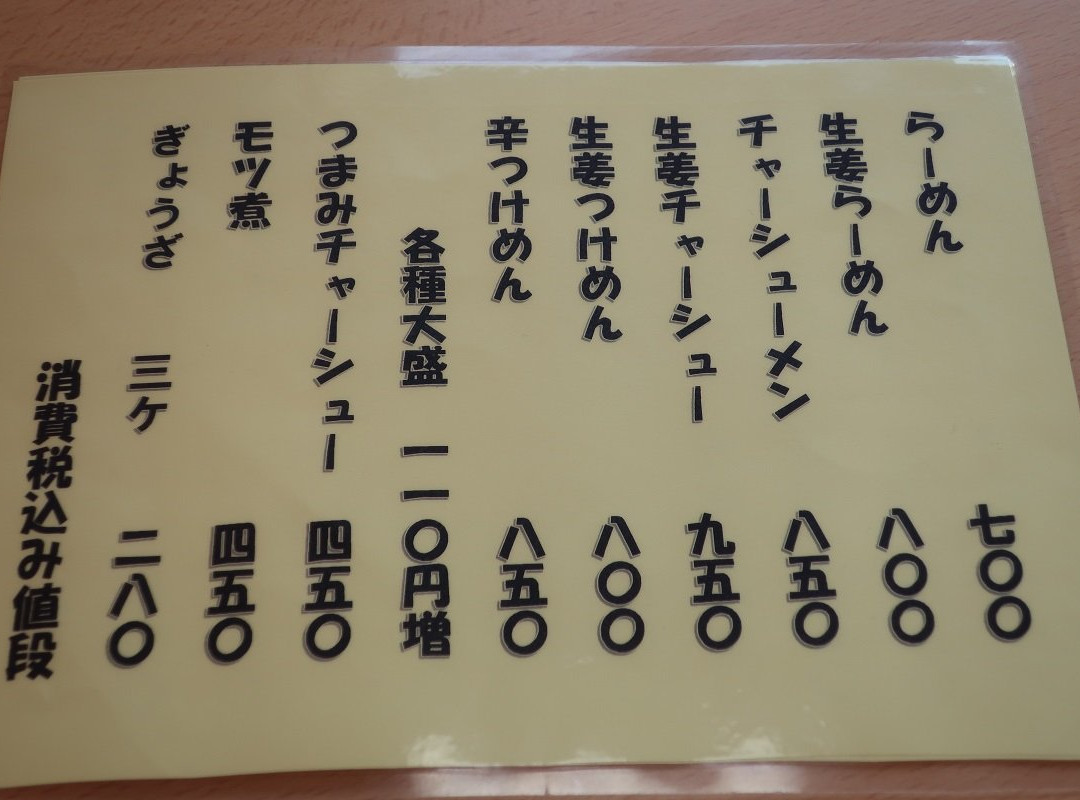 らーめん 七〇〇
生姜らーめん 八〇〇
チャーシューメン 八五〇
生姜チャーシュー 九五〇
生姜つけめん 八〇〇
辛つけめん 八五〇
各種大盛 一一〇円増
つまみチャーシュー 四五〇
モツ煮 四五〇
ぎょうざ 三ケ 二八〇
消費税込み値段